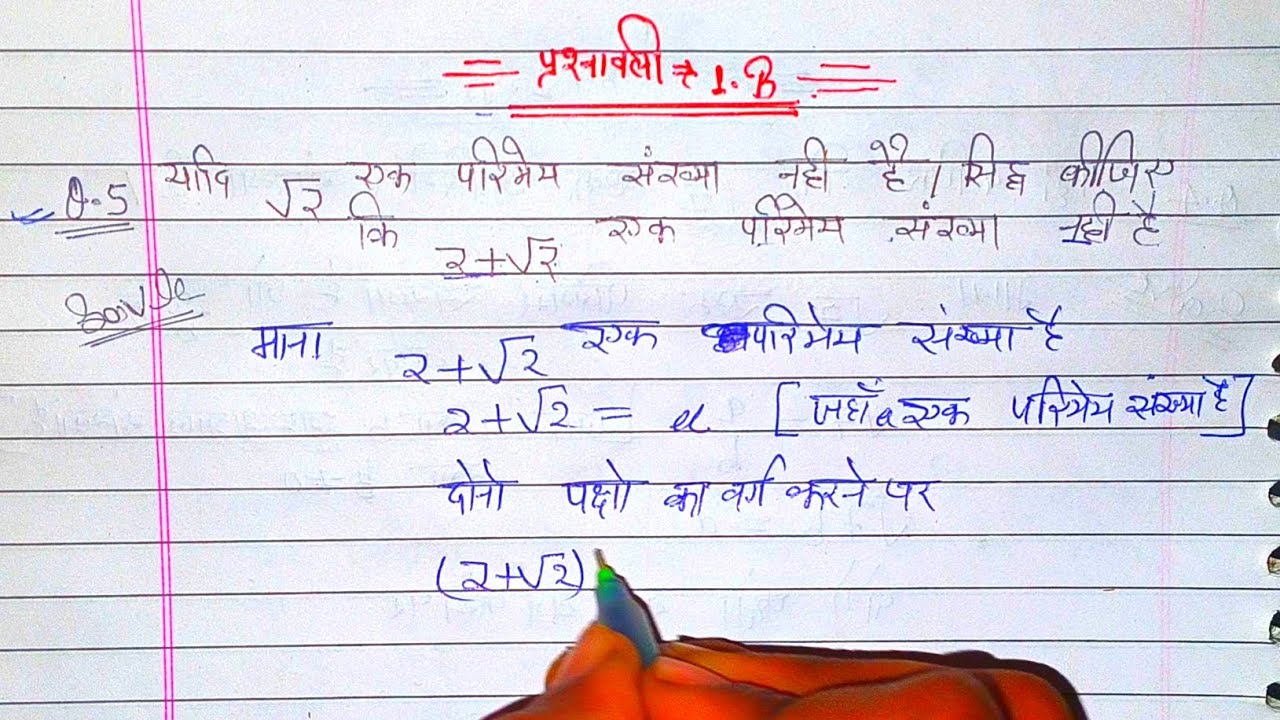 प्रश्नावली → 1.B
Q.5 यदि √2 एक परिमेय संख्या नही है। सिद्ध कीजिए
कि 2+√2 एक परिमेय संख्या नही है
Solve
माना 2+√2 एक परिमेय संख्या है
2+√2 = a [जहाँ a एक परिमेय संख्या है]
दोनो पक्षो का वर्ग करने पर
(2+√2)